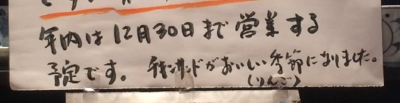 年内は12月30日まで営業する
予定です。 サンドがおいしい季節になりました。
(りんご)